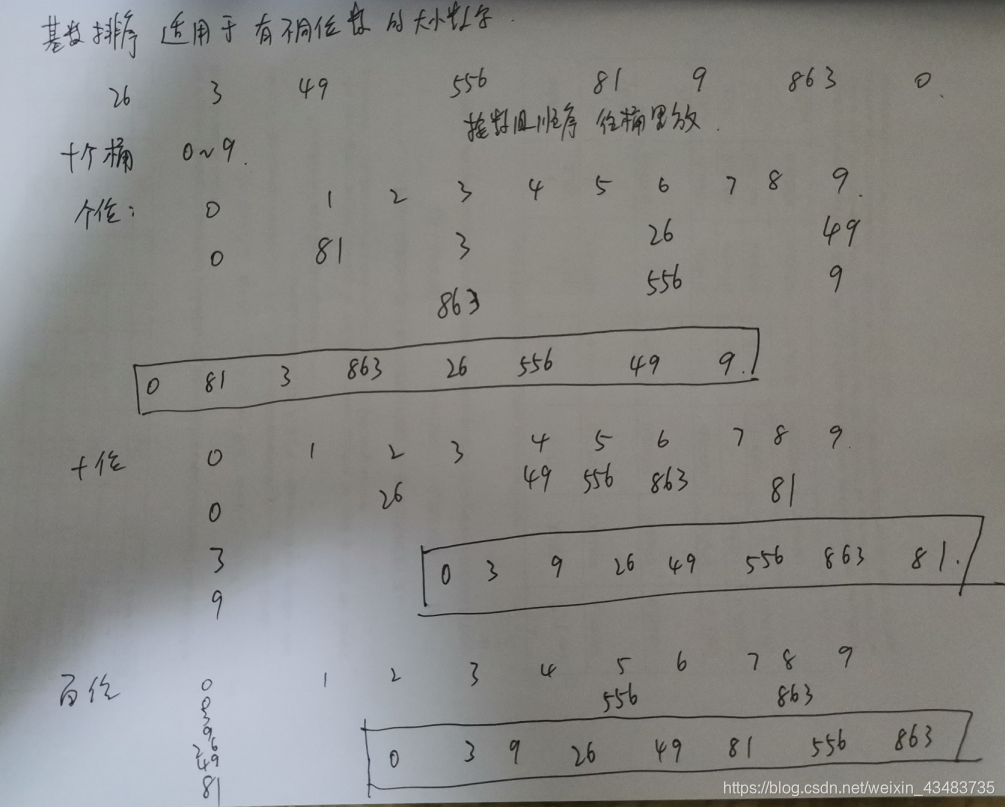 基数排序 适用于 有不同位数 的大小数字.
26 3 49 556 81 9 863 0.
按数组顺序 往桶里放.
十个桶 0~9.
个位: 0 1 2 3 4 5 6 7 8 9.
0 81 3 26 49
863 556 9
0 81 3 863 26 556 49 9.
十位 0 1 2 3 4 5 6 7 8 9.
0 26 49 556 863 81
3
9
0 3 9 26 49 556 863 81.
百位 0 1 2 3 4 5 6 7 8 9
0 556 863
3
9
26
49
81
0 3 9 26 49 81 556 863
https://blog.csdn.net/weixin_43483735